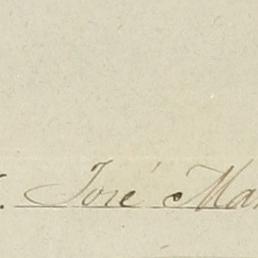 José Mar